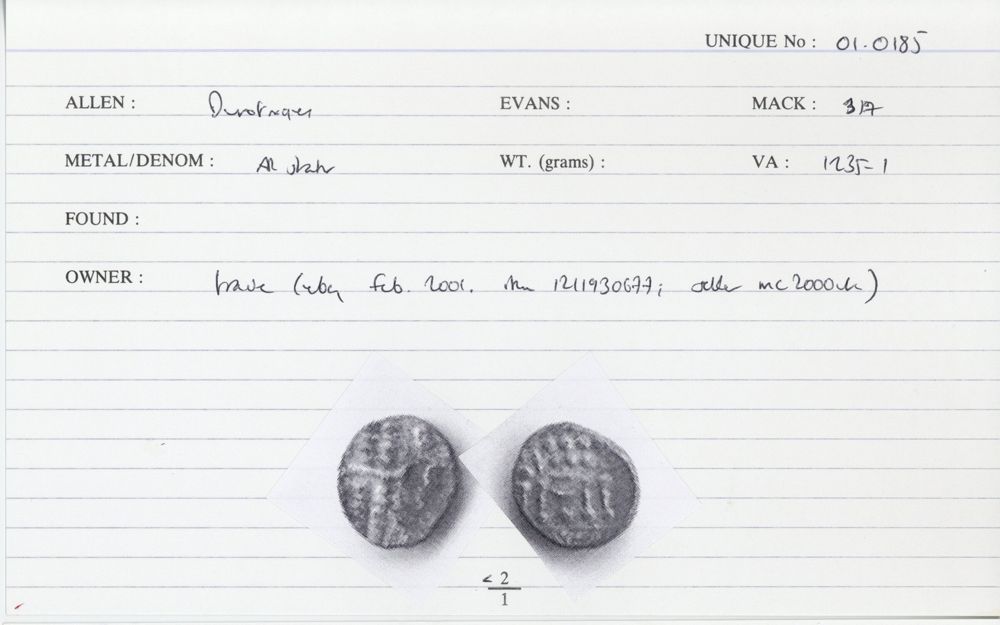 UNIQUE No : 01.0185
ALLEN : Durotriges EVANS : MACK : 317
METAL/DENOM : AR stater WT. (grams) : VA : 1235-1
FOUND :
OWNER : trade (ebay Feb. 2001. item 1211930677; seller mc2000uk)
< 2
1